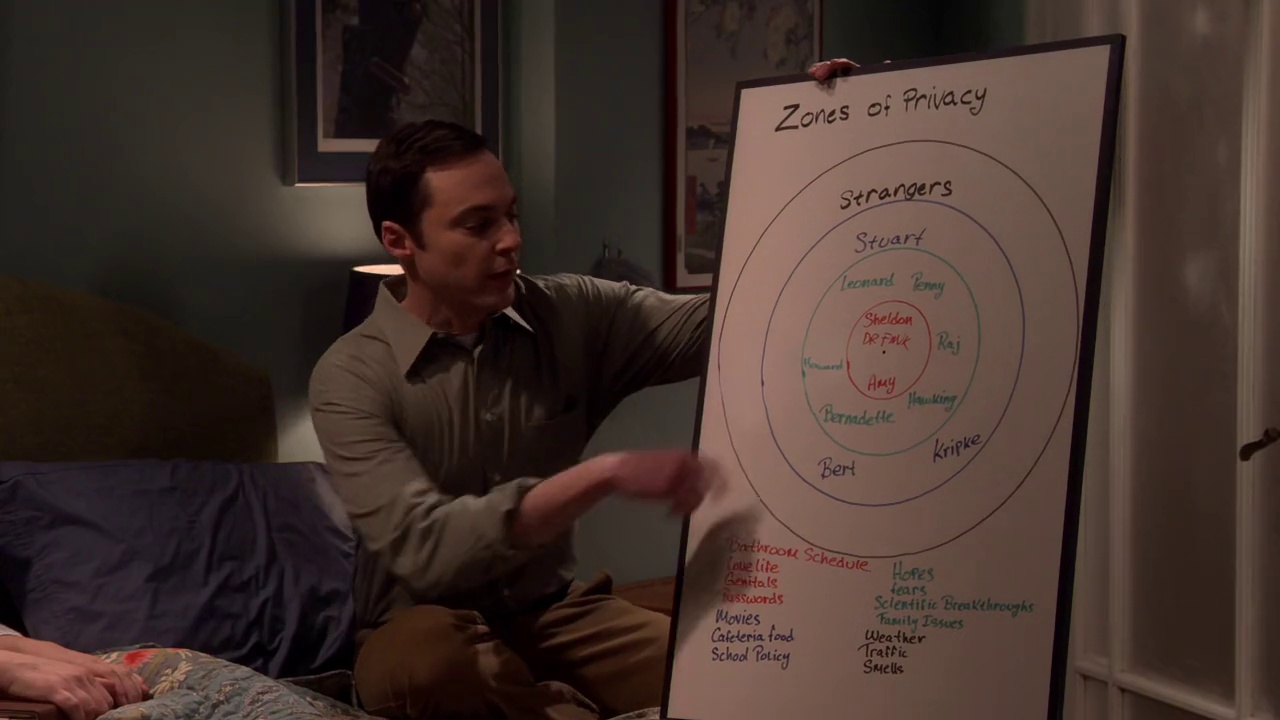 Zones of Privacy
Strangers
Stuart
Leonard Penny
Sheldon
DR. FMK
Raj
Howard
Amy
Hawking
Bernadette
Kripke
Bert
Bathroom Schedule
Love life
Genitals
Passwords
Movies
Cafeteria food
School Policy
Hopes
fears
Scientific Breakthroughs
Family Issues
Weather
Traffic
Smells